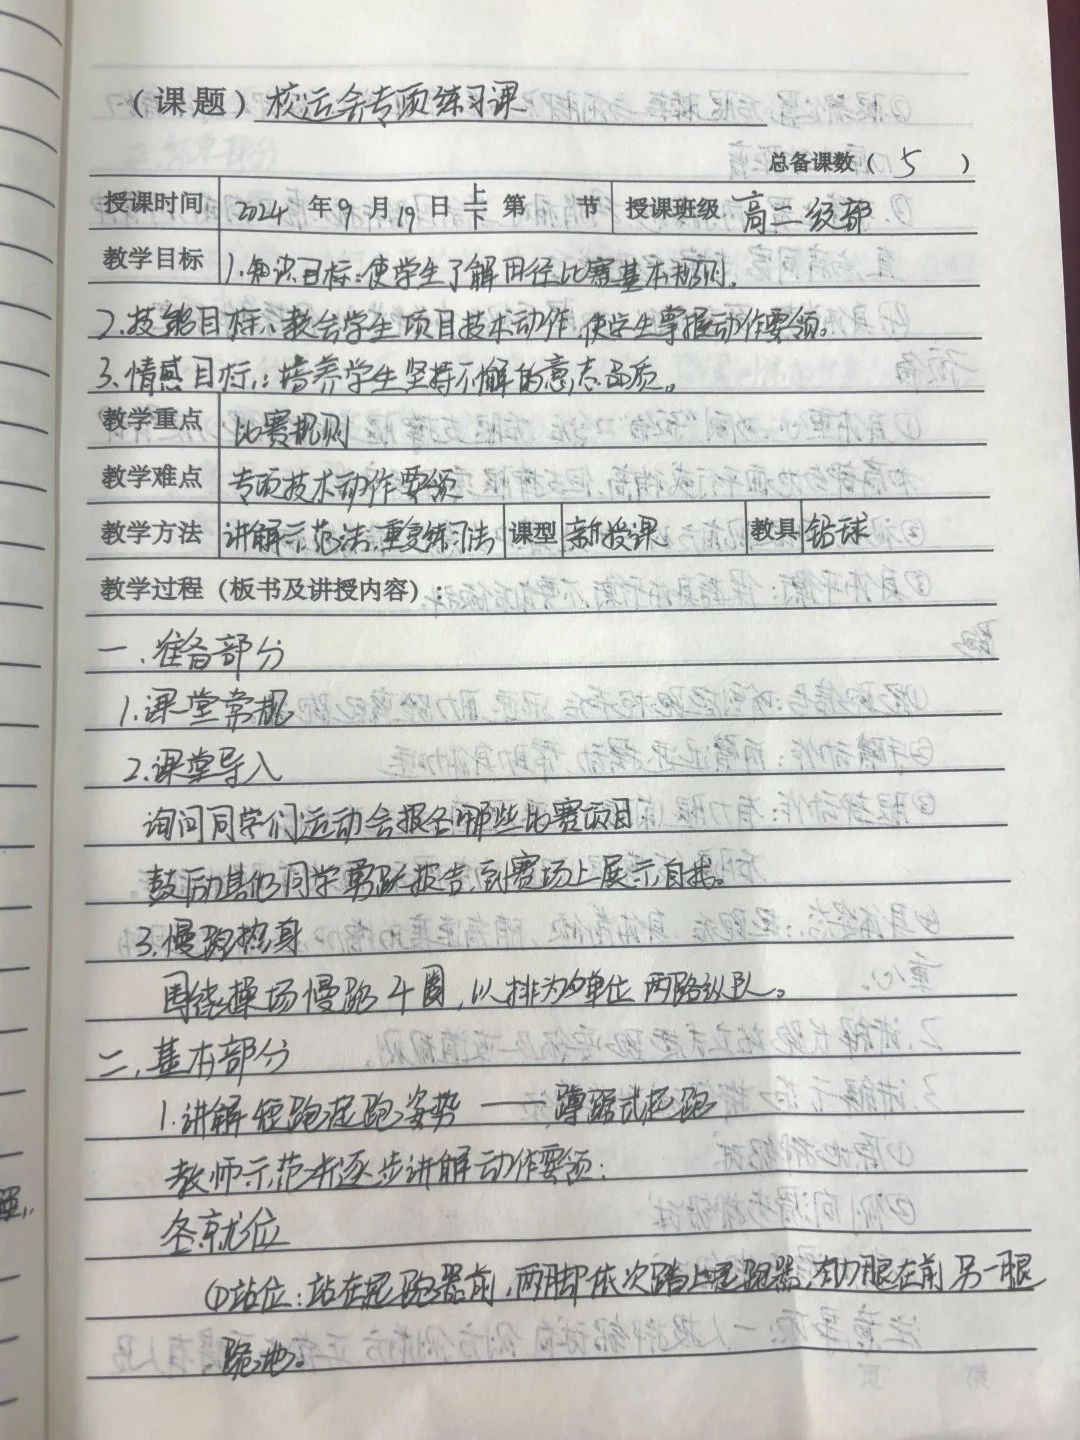 （课题）校运会专项练习课
总备课数（ 5 ）
授课时间 2024 年 9 月 19 日 上/下 第 节 授课班级 高二级部
教学目标 1.知识目标:使学生了解田径比赛基本规则。
2.技能目标:教会学生项目技术动作,使学生掌握动作要领。
3.情感目标:培养学生坚持不懈的意志品质。
教学重点 比赛规则
教学难点 专项技术动作要领
教学方法 讲解示范法.重复练习法 课型 新授课 教具 铅球
教学过程（板书及讲授内容）:
一.准备部分
1.课堂常规
2.课堂导入
询问同学们运动会报名哪些比赛项目
鼓励其他同学勇跃报告,到赛场上展示自我。
3.慢跑热身
围绕操场慢跑4圈,以排为单位两路纵队。
二.基本部分
1.讲解短跑起跑姿势——蹲踞式起跑
教师示范并逐步讲解动作要领:
各就位
①站位:站在起跑器前,两脚依次踏上起跑器,有力腿在前另一腿
跪地。